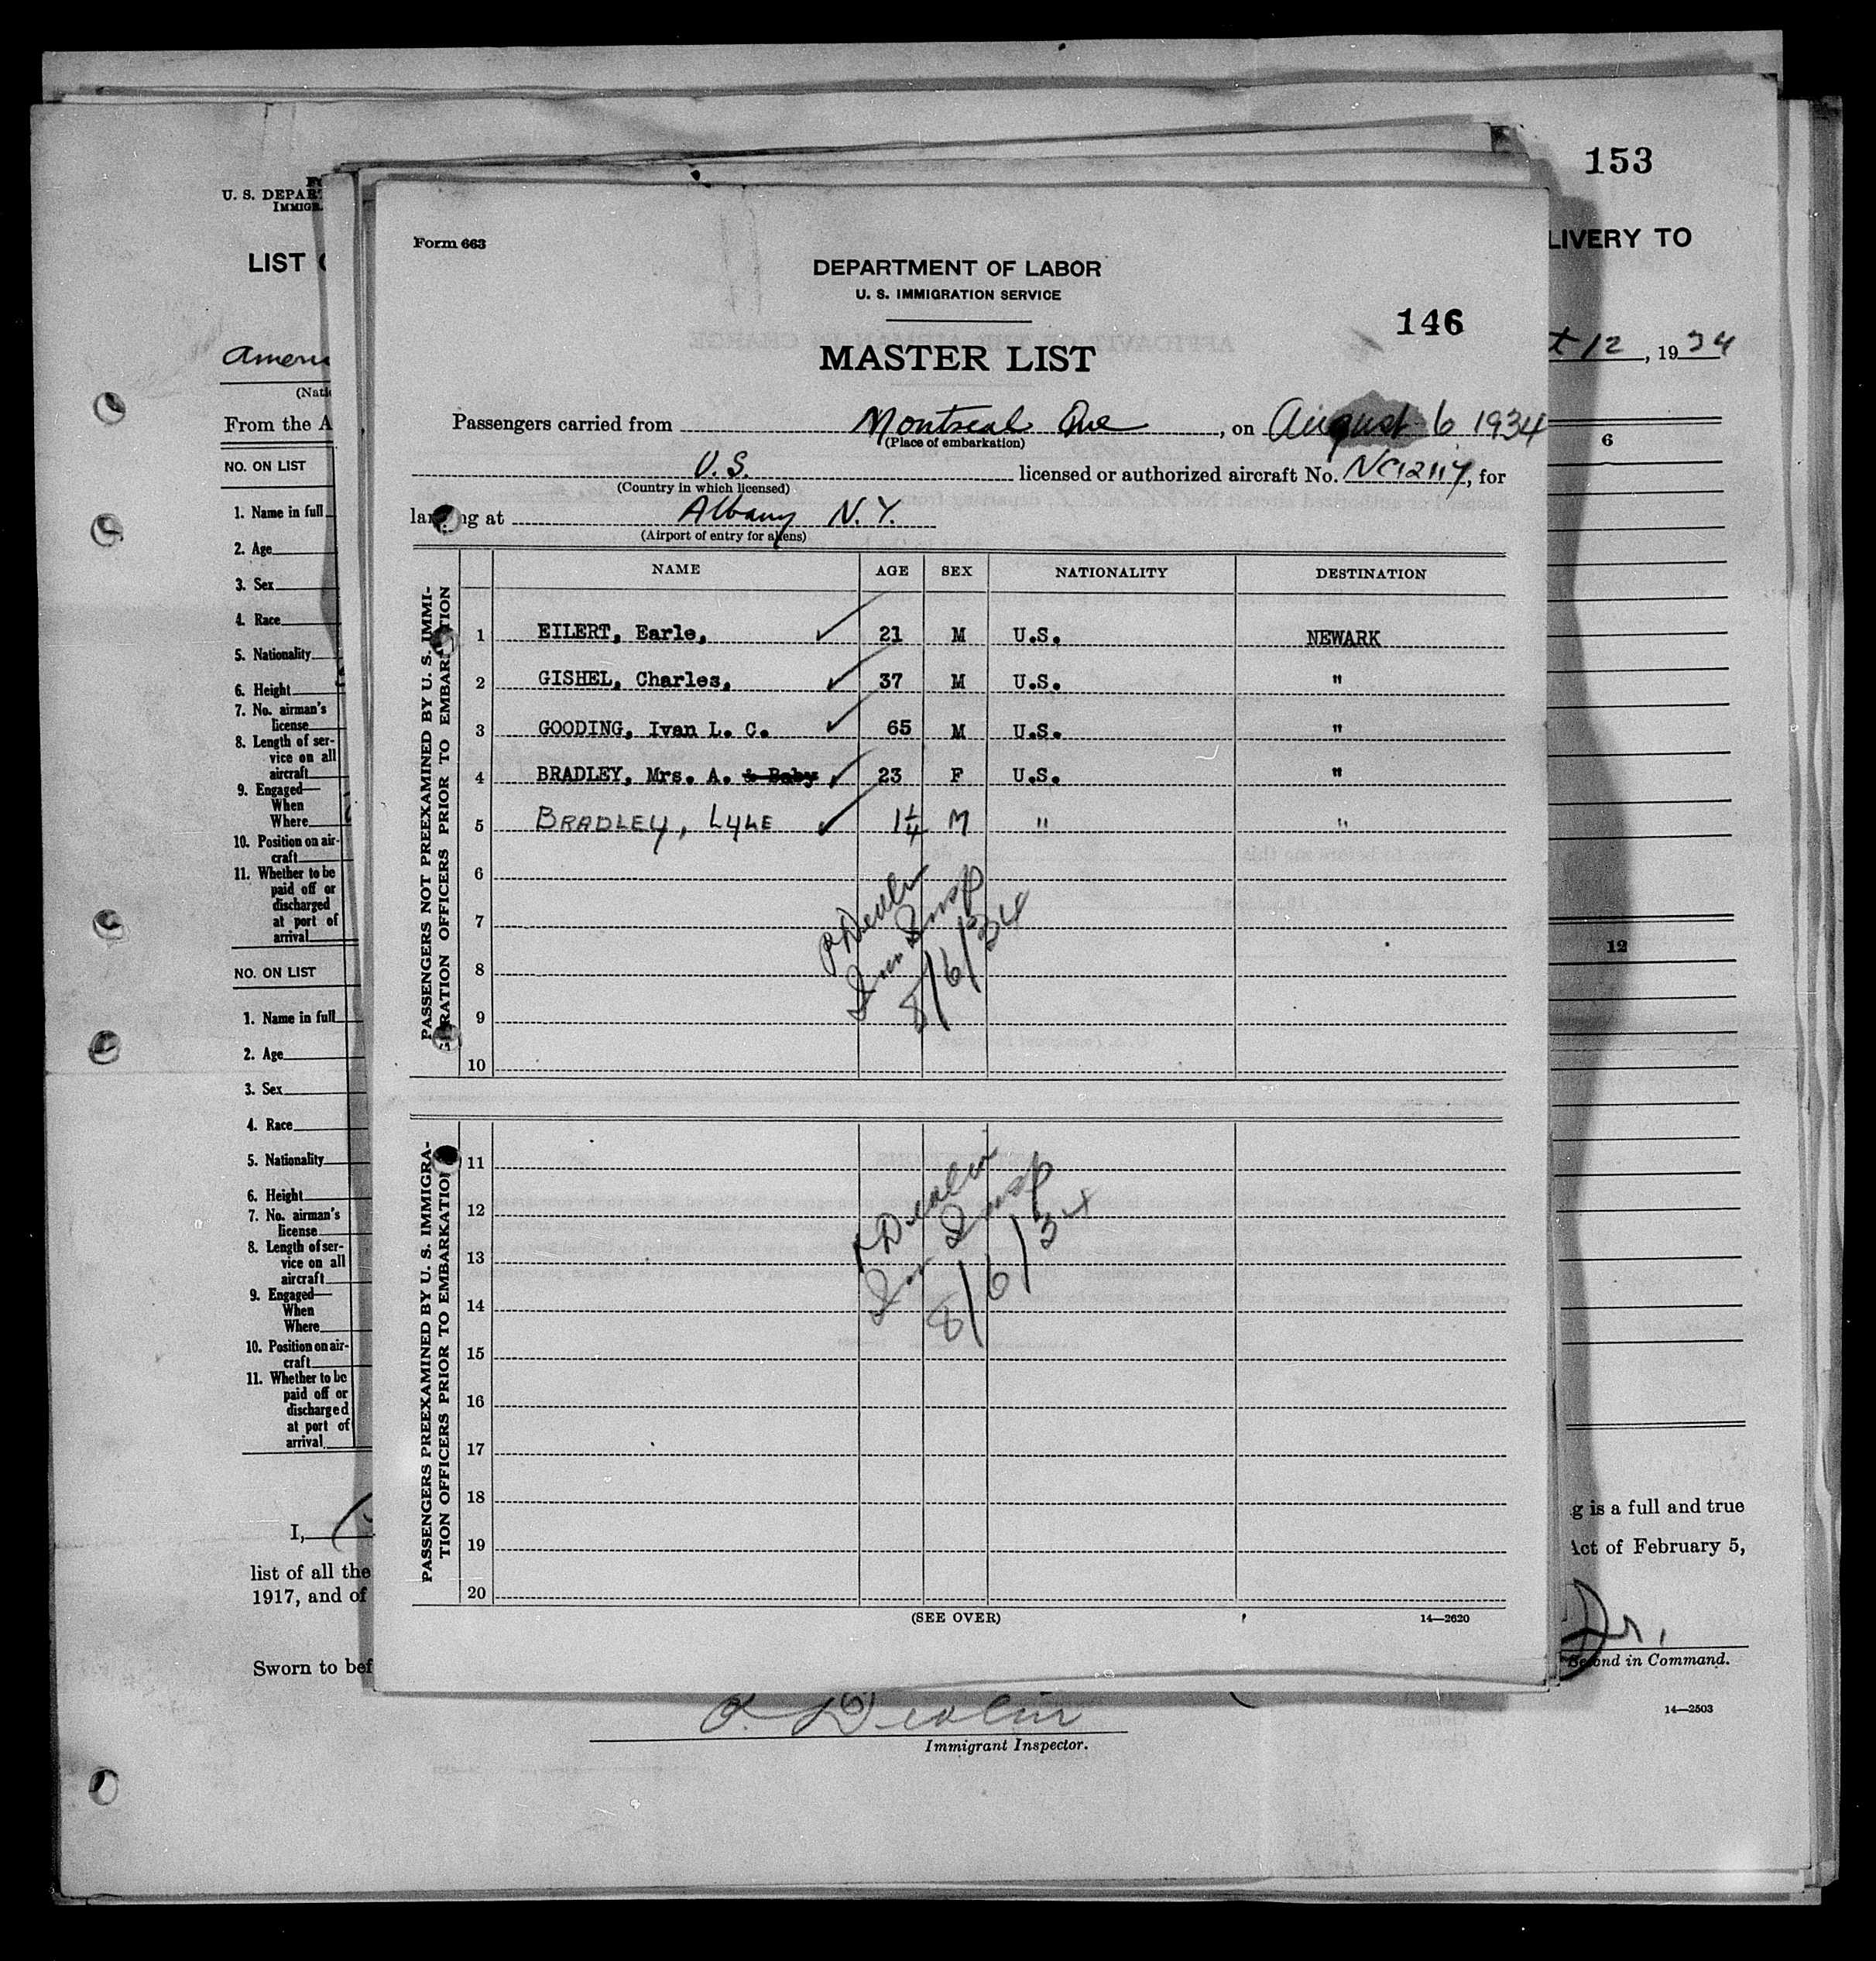 153
U. S. DEPAR
IMMIG
LIST
LIVERY TO
12, 1934
(Nati
From the A
6
Form 663
DEPARTMENT OF LABOR
U. S. IMMIGRATION SERVICE
146
MASTER LIST
Passengers carried from Montreal Que, on August 6 1934
(Place of embarkation)
U.S. licensed or authorized aircraft No. NC12117, for
(Country in which licensed)
landing at Albany N.Y.
(Airport of entry for aliens)
PASSENGERS NOT PREEXAMINED BY U. S. IMMI-
GRATION OFFICERS PRIOR TO EMBARKATION
NAME AGE SEX NATIONALITY DESTINATION
1 EILERT, Earle, 21 M U.S. NEWARK
2 GISHEL, Charles, 37 M U.S. "
3 GOODING, Ivan L. C. 65 M U.S. "
4 BRADLEY, Mrs. A. & Baby 23 F U.S. "
5 BRADLEY, LYLE 1¼ M " "
6
7
8
9
10
P Devlin
Imm Insp
8/6/34
PASSENGERS PREEXAMINED BY U. S. IMMIGRA-
TION OFFICERS PRIOR TO EMBARKATION
11
12
13
14
15
16
17
18
19
20
Devlin
Imm Insp
8/6/34
(SEE OVER)
14—2620
NO. ON LIST
1. Name in full
2. Age
3. Sex
4. Race
5. Nationality
6. Height
7. No. airman's
license
8. Length of ser-
vice on all
aircraft
9. Engaged—
When
Where
10. Position on air-
craft
11. Whether to be
paid off or
discharged
at port of
arrival
12
NO. ON LIST
1. Name in full
2. Age
3. Sex
4. Race
5. Nationality
6. Height
7. No. airman's
license
8. Length of ser-
vice on all
aircraft
9. Engaged—
When
Where
10. Position on air-
craft
11. Whether to be
paid off or
discharged
at port of
arrival
I,
g is a full and true
list of all the
Act of February 5,
1917, and of
Jr.
Sworn to bef
Second in Command.
Devlin
Immigrant Inspector.
14—2503